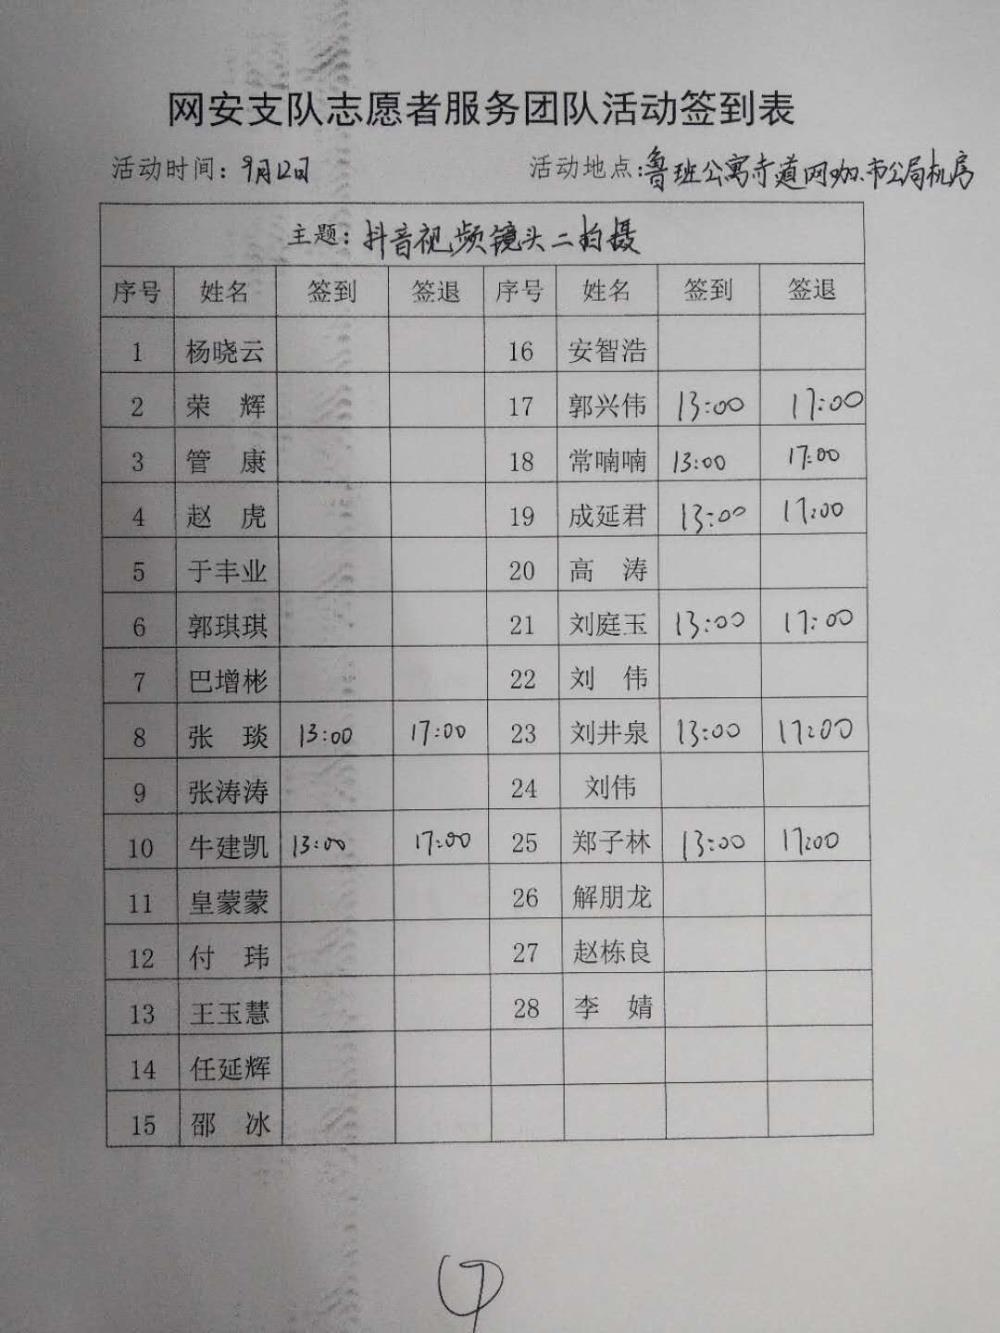 网安支队志愿者服务团队活动签到表
活动时间：9月12日 活动地点：鲁班公寓寺道网咖、市公局机房
主题：抖音视频镜头二拍摄
序号 姓名 签到 签退 序号 姓名 签到 签退
1 杨晓云 16 安智浩
2 荣 辉 17 郭兴伟 13:00 17:00
3 管 康 18 常喃喃 13:00 17:00
4 赵 虎 19 成延君 13:00 17:00
5 于丰业 20 高 涛
6 郭琪琪 21 刘庭玉 13:00 17:00
7 巴增彬 22 刘 伟
8 张 琰 13:00 17:00 23 刘井泉 13:00 17:00
9 张涛涛 24 刘伟
10 牛建凯 13:00 17:00 25 郑子林 13:00 17:00
11 皇蒙蒙 26 解朋龙
12 付 玮 27 赵栋良
13 王玉慧 28 李 婧
14 任延辉
15 邵 冰